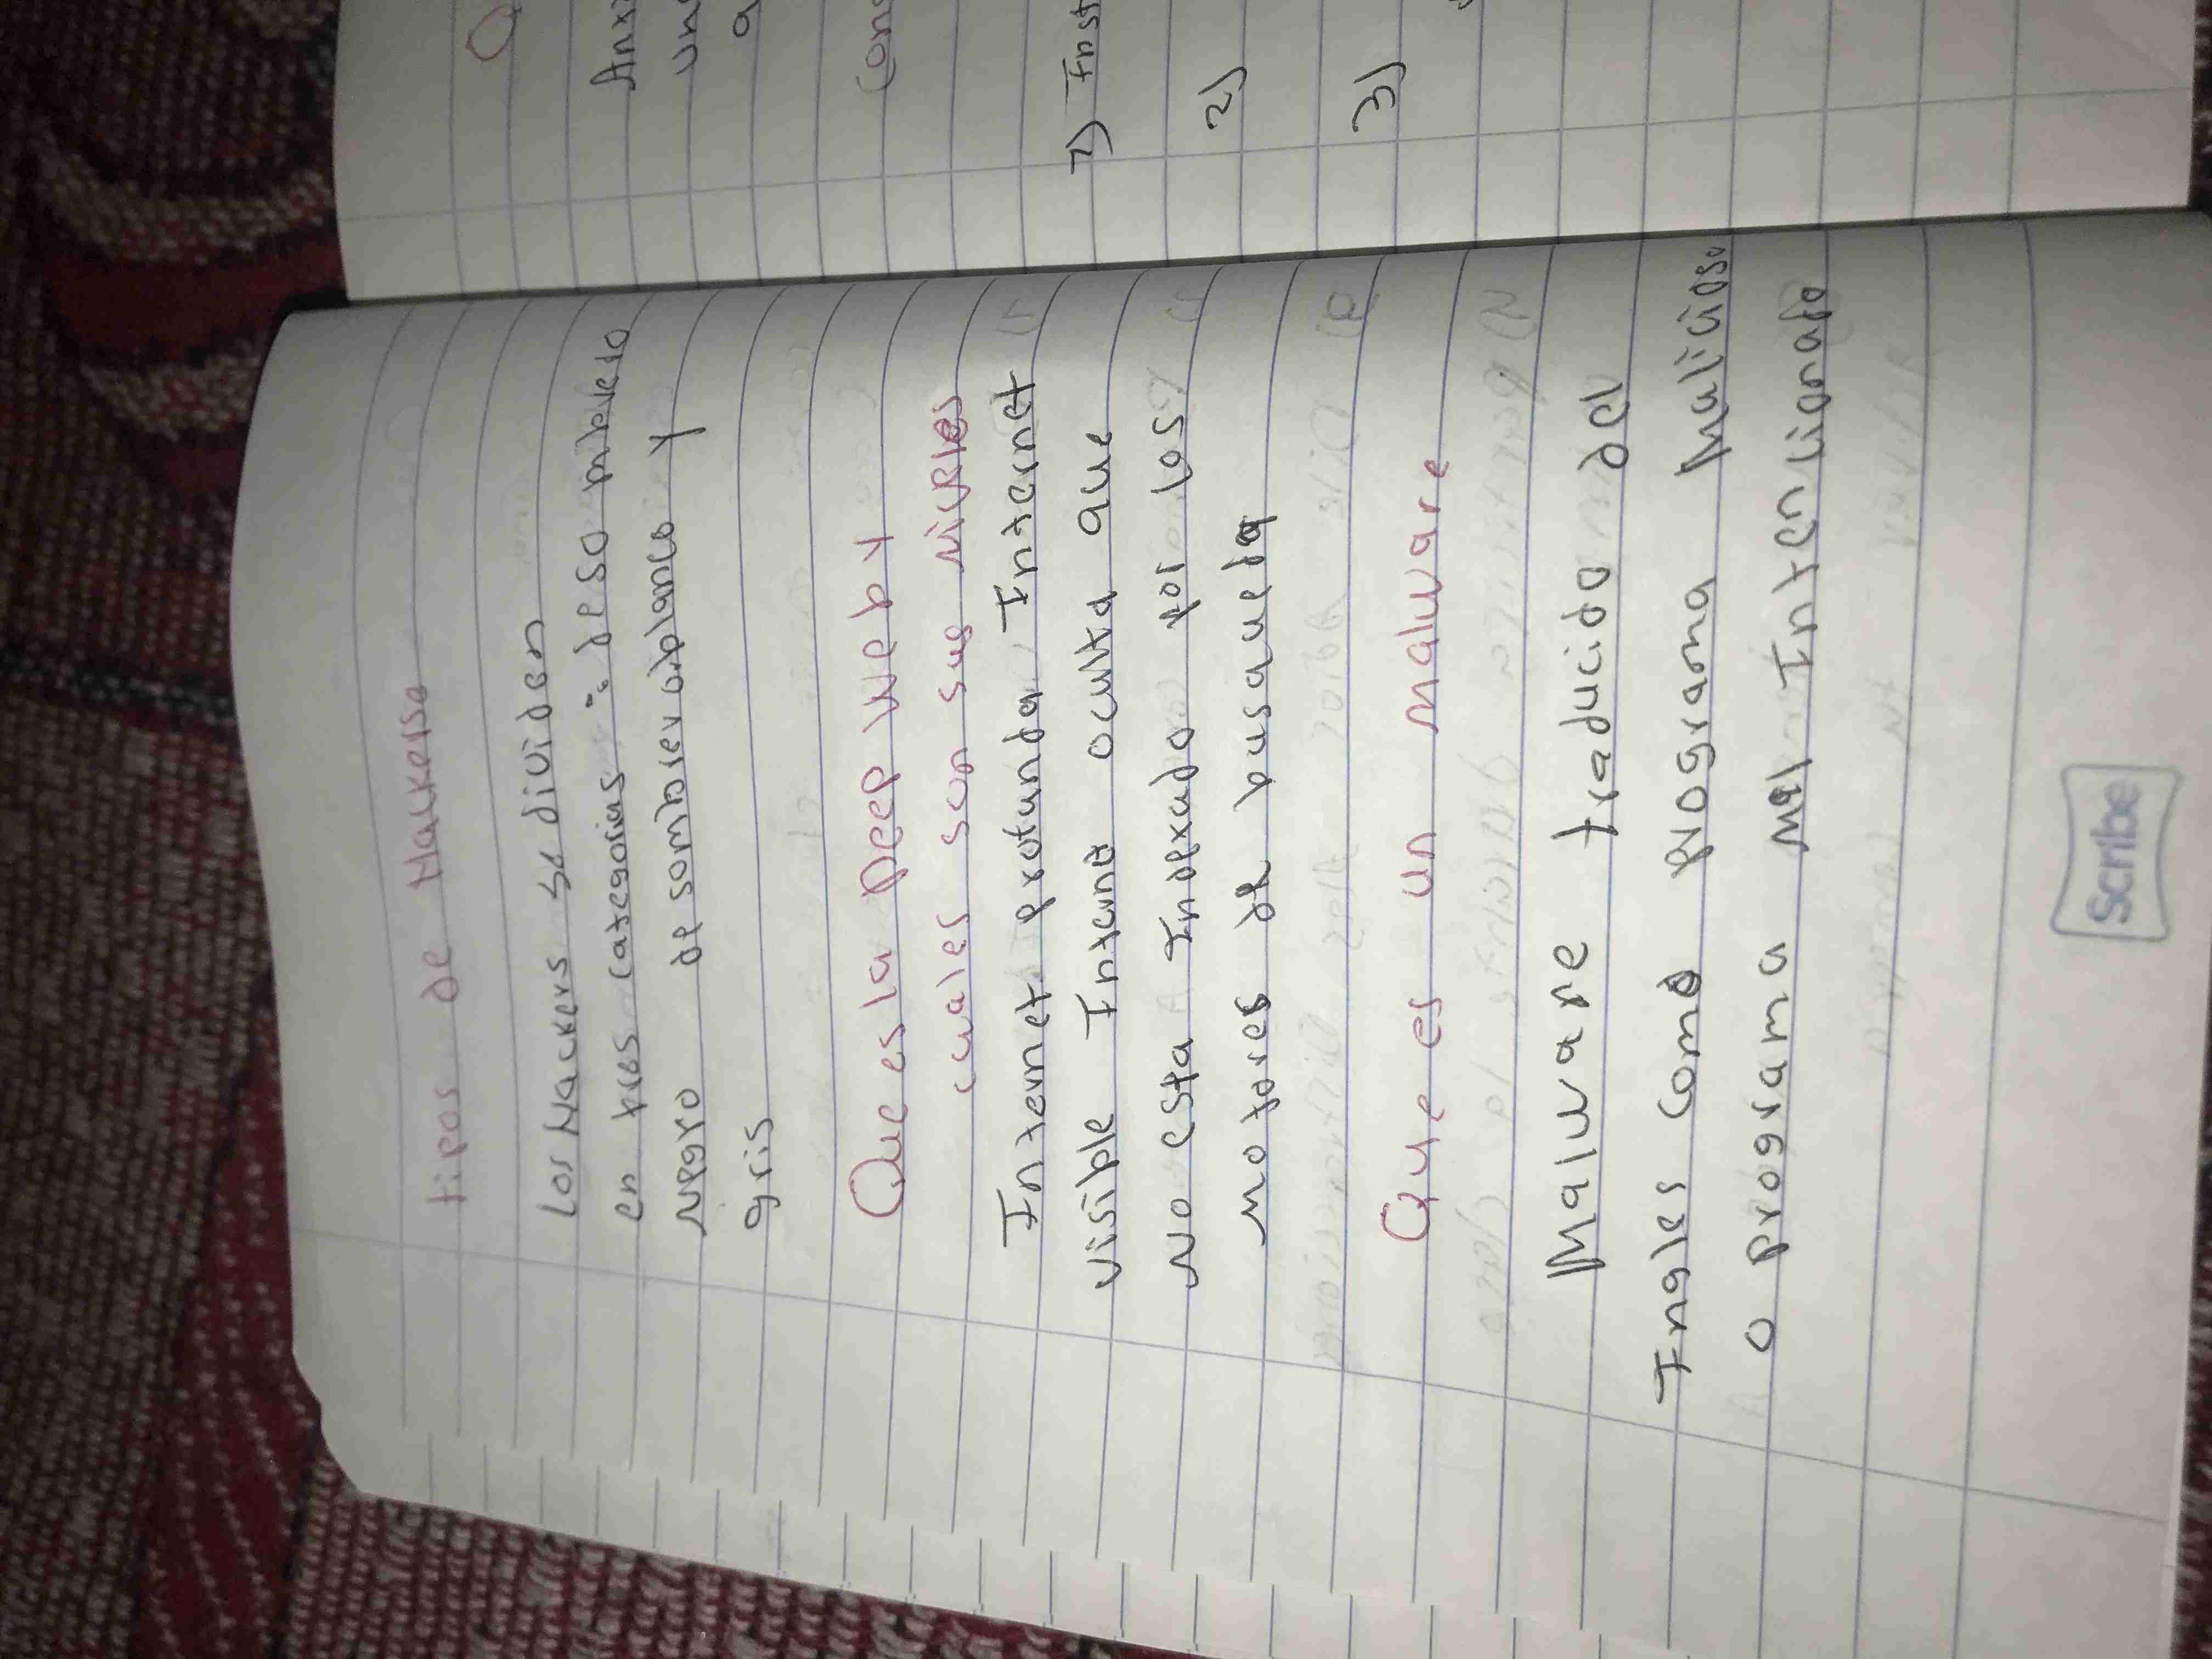 tipos de Hackerso
los Hackers se dividen
en tres categorias : de so mbrero
negro de sombrero blanco y
gris
Que es la Deep Web y
cuales son sus niveles
Internet profunda Internet
visible Internt oculta que
No esta Indexado por los
motores de busqueda
Que es un malware
Malware traducido del
Ingles como programa Malicioso
o programa mal Intencionado
Scribe
1) Inst
2)
3)